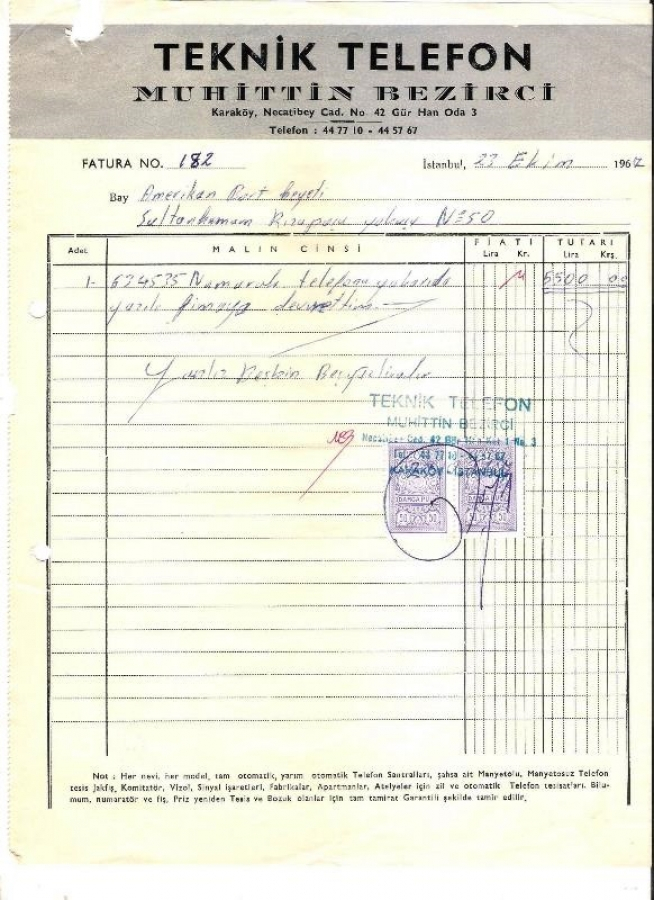 TEKNİK TELEFON
MUHİTTİN BEZİRCİ
Karaköy, Necatibey Cad. No. 42 Gür Han Oda 3
Telefon : 44 77 10 - 44 57 67
FATURA NO. 182
İstanbul, 23 Ekim 196
Bay Amerikan Heyeti
Sultanhamam No 50
Adet MALIN CİNSİ FİATI TUTARI
Lira Kr. Lira Krş.
1- 624535 Numaralı telefonu yukarıda 5500 00
yazılı firmaya devrettim.
Yalnız Beşbin Beşyüzliradır
TEKNİK TELEFON
MUHİTTİN BEZİRCİ
Necatibey Cad. 42 No. 3
Tel. 44 77 10 - 44 57 67
KARAKÖY - İSTANBUL
DAMGA PULU
50 50
Not : Her nevi, her model, tam otomatik, yarım otomatik Telefon Santralları, şahsa ait Manyetolu, Manyetosuz Telefon
tesis Jakfiş, Komitatör, Vizol, Sinyal işaretleri, Fabrikalar, Apartmanlar, Atelyeler için zil ve otomatik Telefon tesisatları. Bilu-
mum, numaratör ve fiş, Priz yeniden Tesis ve Bozuk olanlar için tam tamirat Garantili şekilde tamir edilir.